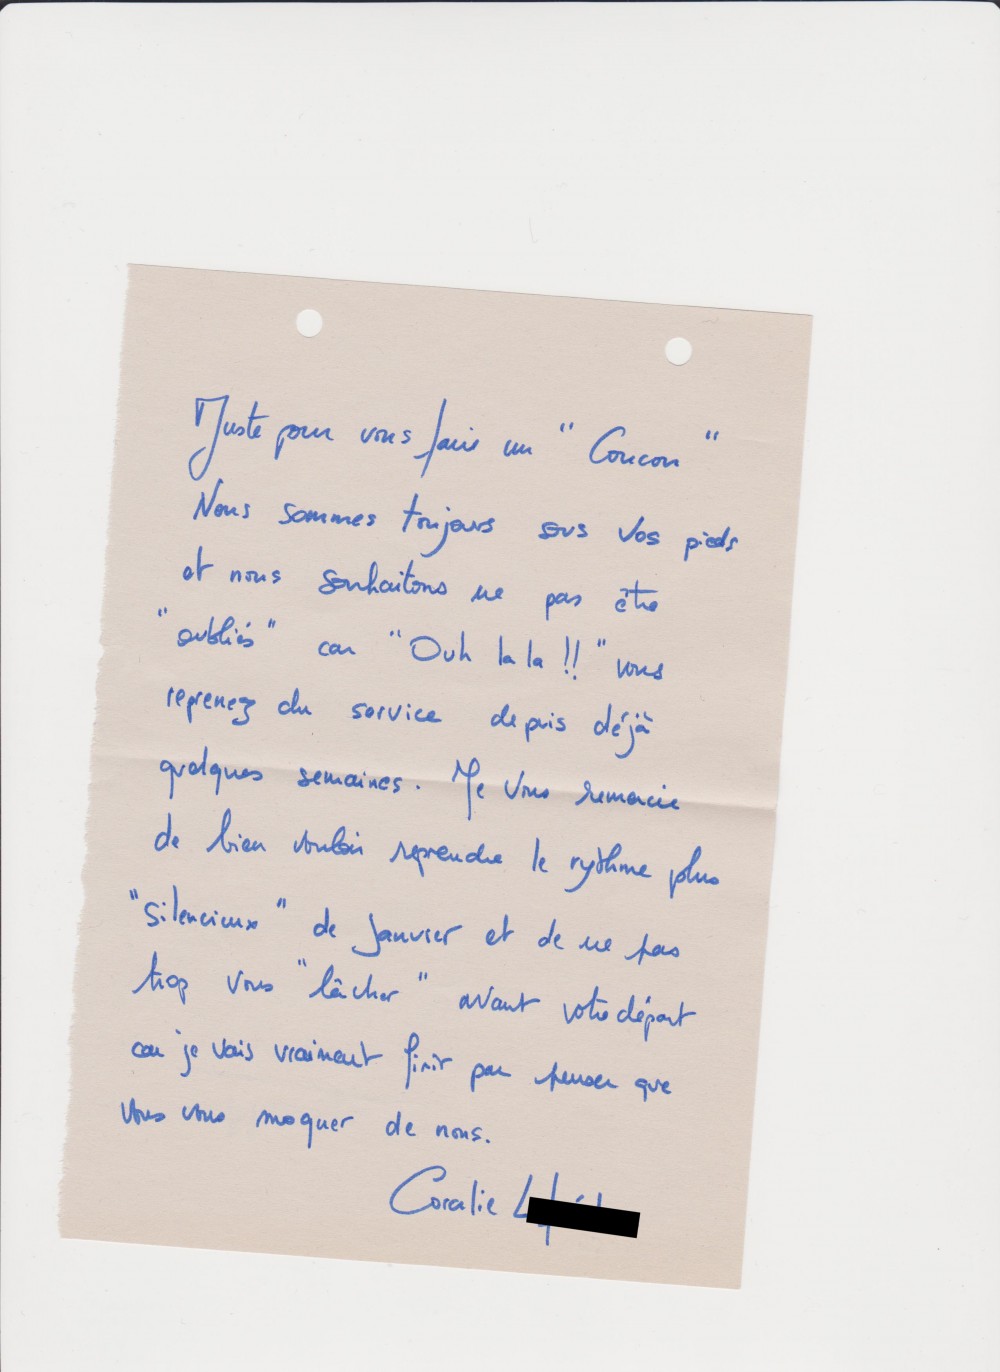 Juste pour vous faire un "Coucou"
Nous sommes toujours sous vos pieds
et nous souhaitons ne pas être
"oubliés" car "Ouh la la !!" vous
reprenez du service depuis déjà
quelques semaines. Je vous remercie
de bien vouloir reprendre le rythme plus
"silencieux" de janvier et de ne pas
trop vous "lâcher" avant votre départ
car je vais vraiment finir par penser que
vous vous moquer de nous.
Coralie